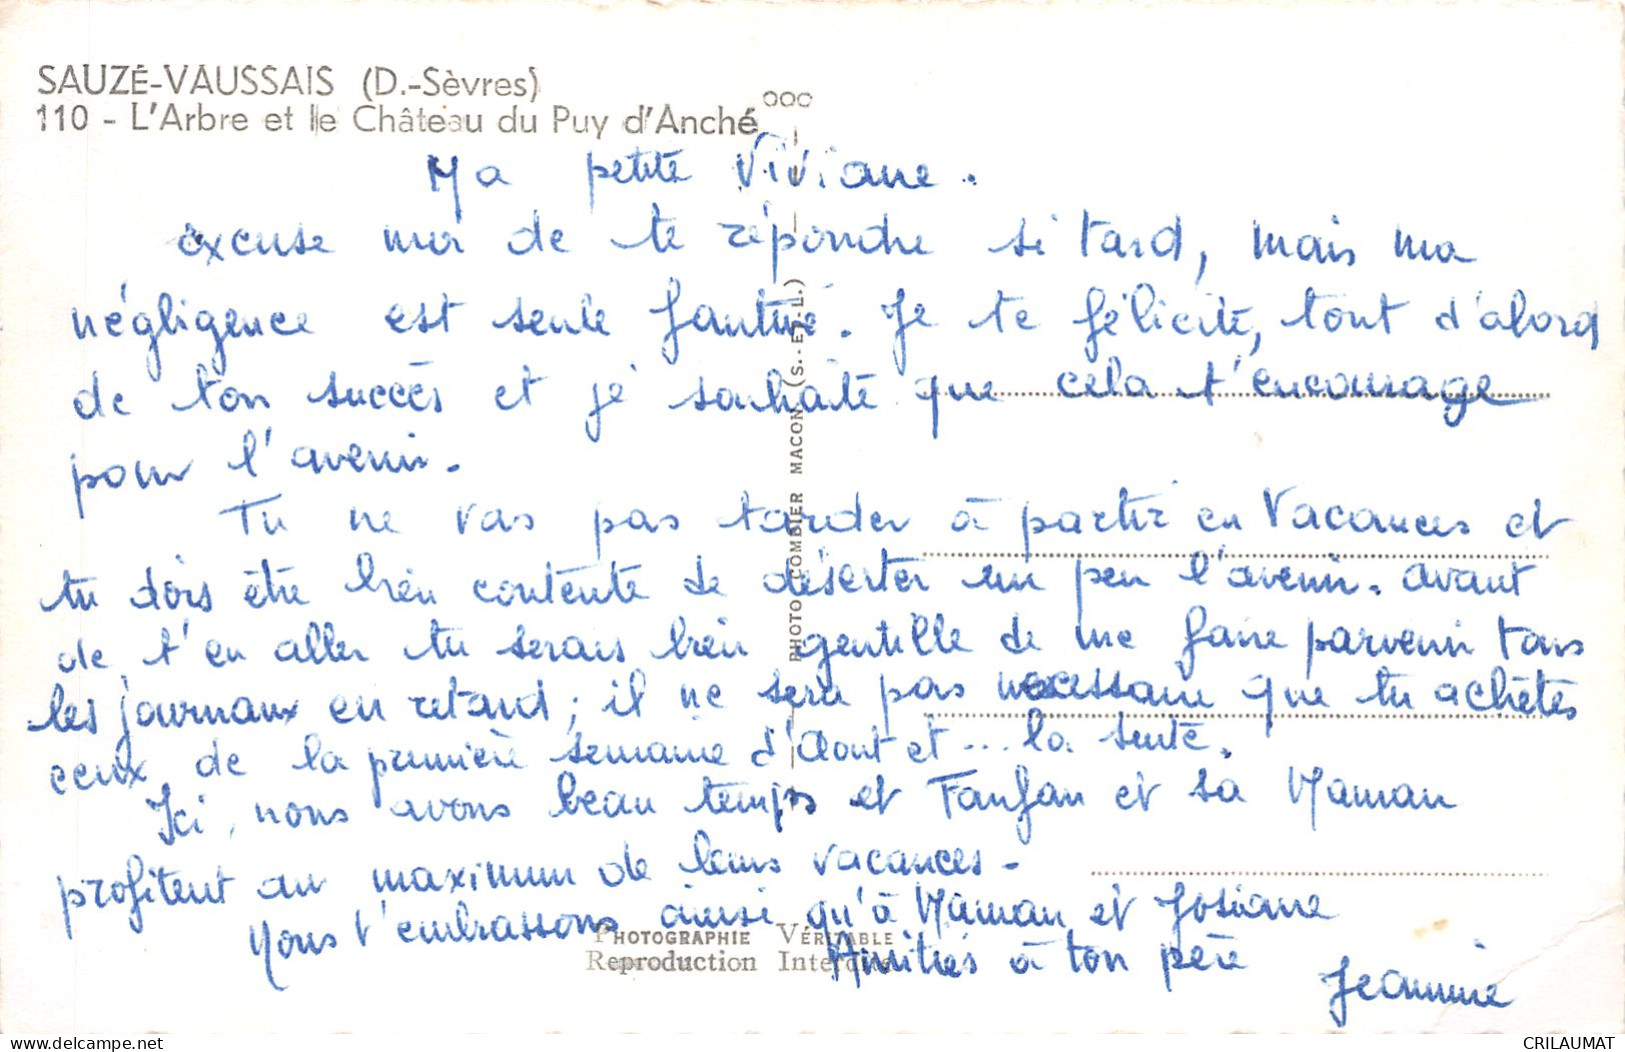 SAUZÉ-VAUSSAIS (D.-Sèvres)
110 - L'Arbre et le Château du Puy d'Anché
Ma petite Viviane.
excuse moi de te répondre si tard, mais ma
négligence est seule fautive. Je te félicite, tout d'abord
de ton succès et je souhaite que cela t'encourage
pour l'avenir.
Tu ne vas pas tarder à partir en Vacances et
tu dois être bien contente de déserter un peu l'avenir. avant
de t'en aller tu serais bien gentille de me faire parvenir tous
les journaux en retard; il ne sera pas nécessaire que tu achètes
ceux de la première semaine d'Aout et... la suite.
Ici, nous avons beau temps et Fanfan et sa Maman
profitent au maximum de leurs vacances -
Nous t'embrassons ainsi qu'à Maman et Josiane
Amitiés à ton père
Jeannine
PHOTO COMBIER MACON (S.-E.-L.)
PHOTOGRAPHIE VÉRITABLE
Reproduction Interdite
delcampe.net
CRILAUMAT